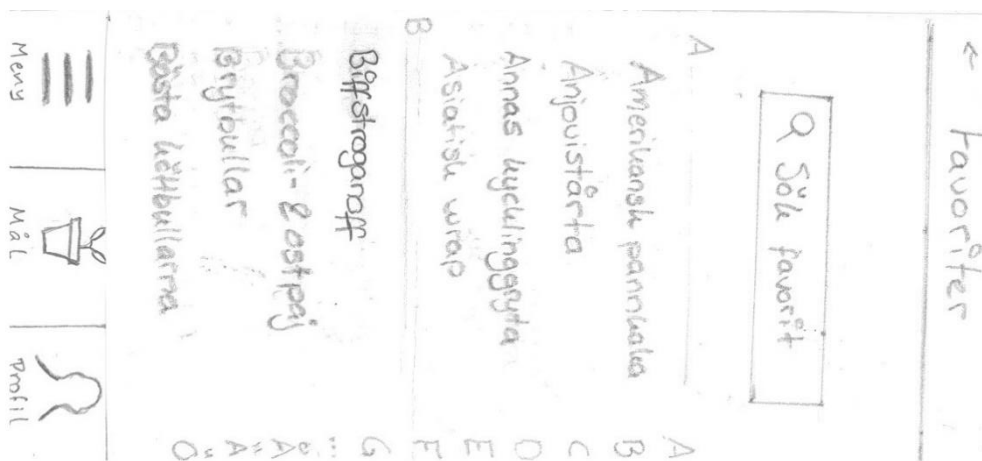 ← Favoriter
Sök favorit
A
Amerikansk pannkaka
Anjovistårta
Annas kycklinggryta
Asiatisk wrap
B
Biffstroganoff
Broccoli- & ostpaj
Brytbullar
Bästa köttbullarna
A
B
C
D
E
F
G
...
Å
Ä
Ö
Meny
Mål
Profil